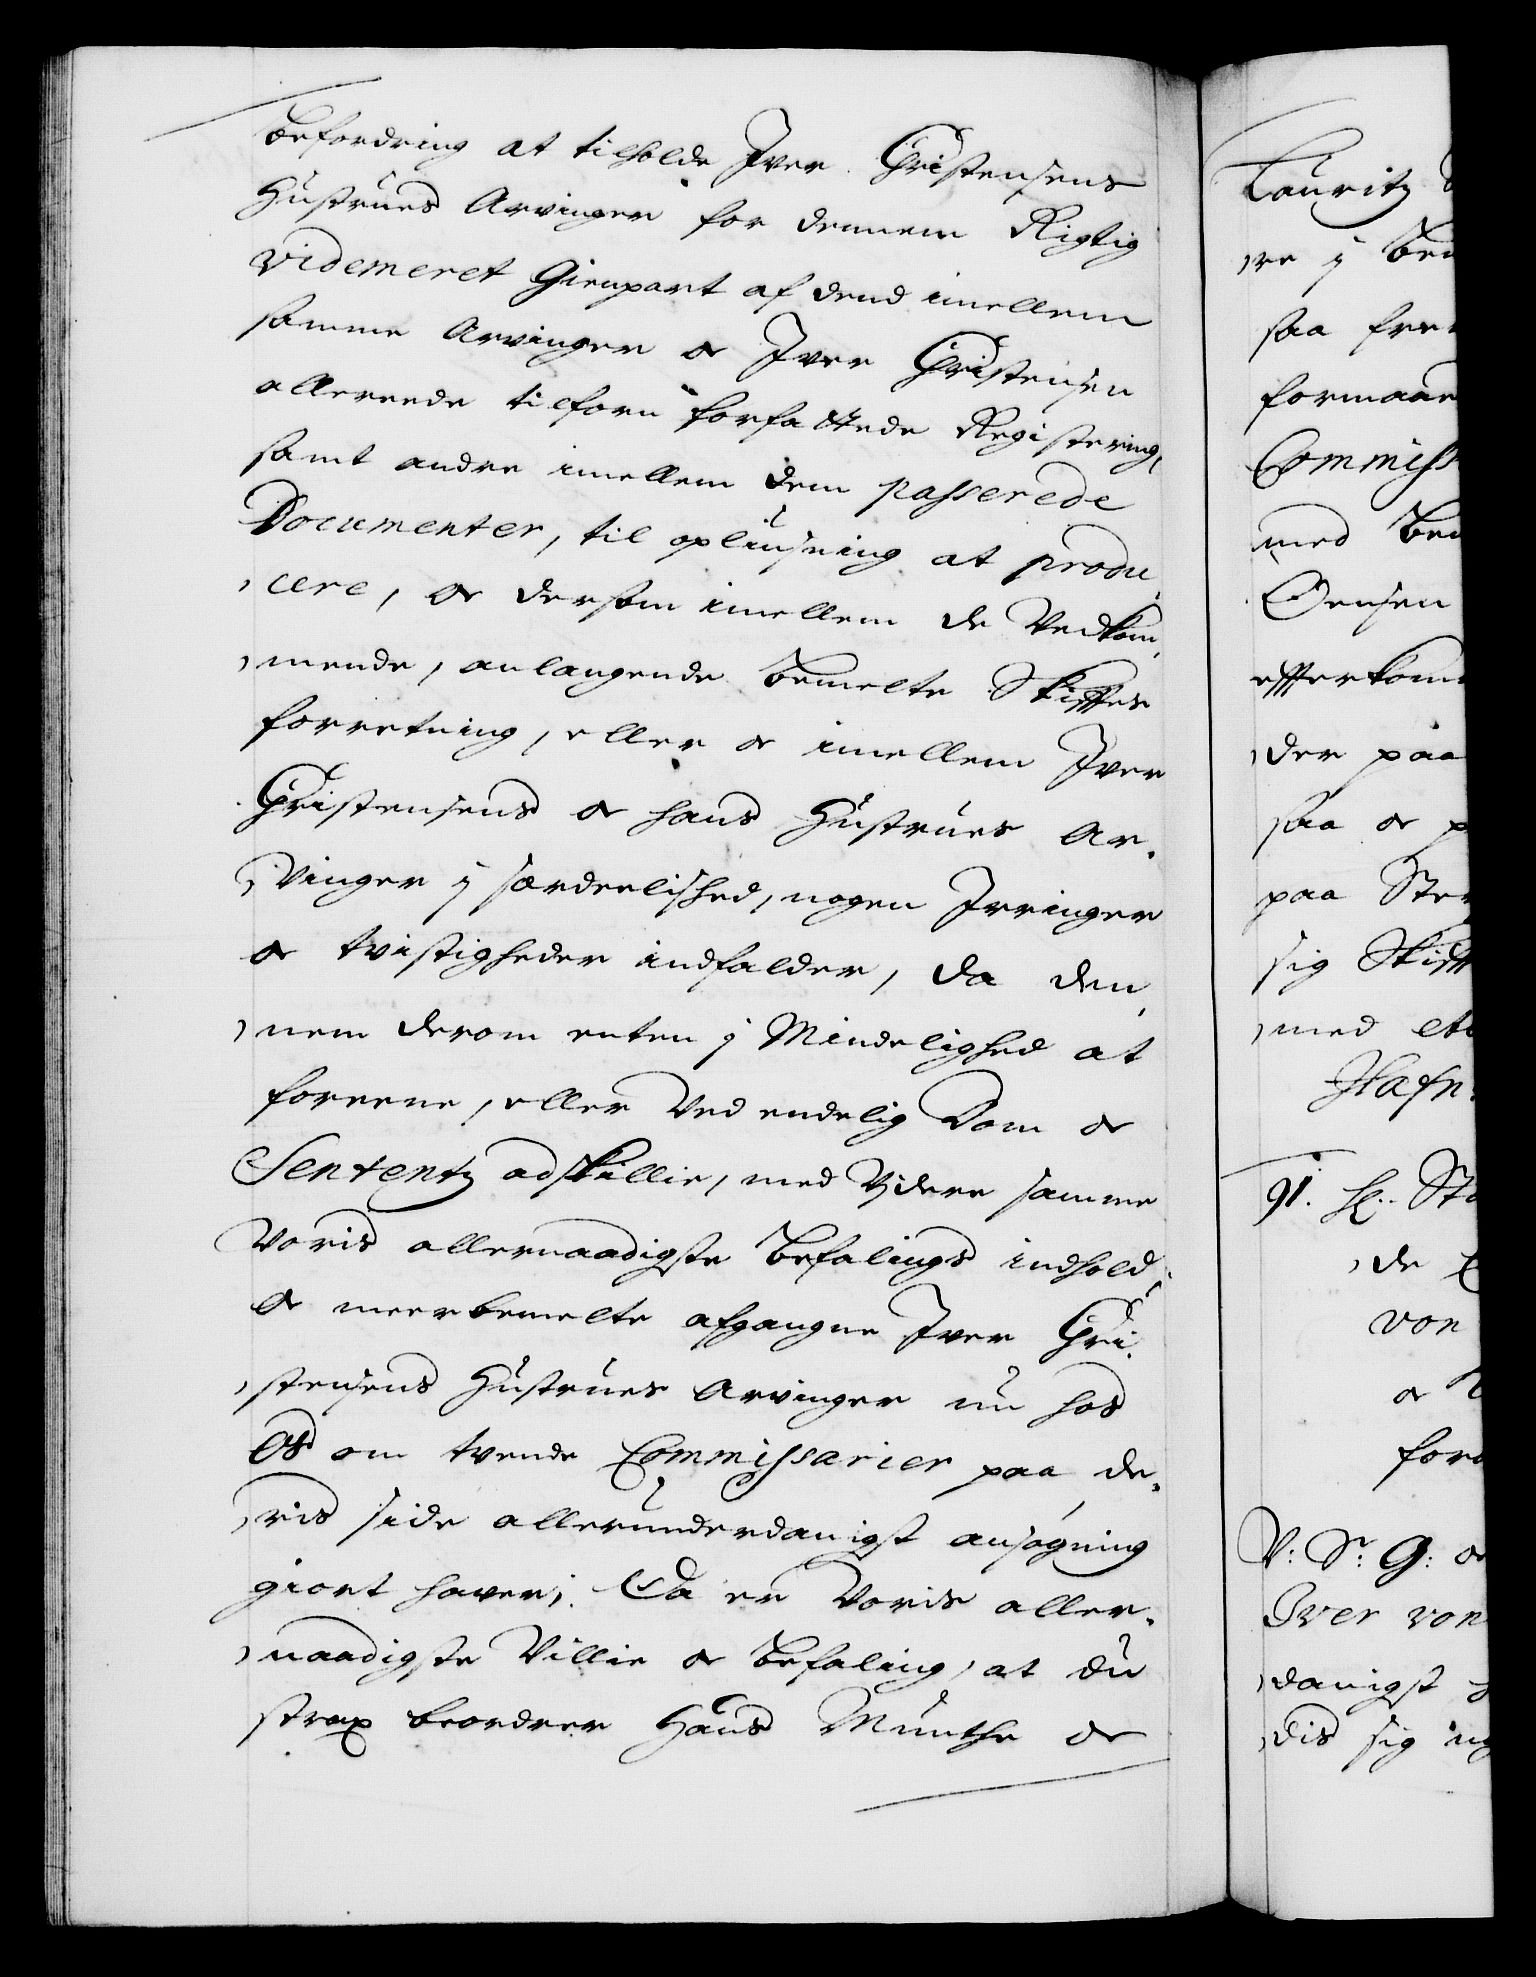 befordring at tilholde Iver Christensens
Hustrues Arvinger for dennem Rigtig
videmeret Gienpart af dend imellem
samme Arvinger oc Iver Christensen
allereede tilforn forfattede Registering,
samt andre imellem dem passerede
Documenter, til opliusning at produ¬
cere, oc dersom imellem de Vedkom¬
mende, anlangende bemelte Skifftes
forretning, eller oc imellem Iver
Christensens oc hans Hustrues Ar¬
vinger i særdeelished, nogen Irringer
oc tvistigheder indfalder, da den¬
nem derom enten i Mindelighed at
foreene, eller ved endelig Dom oc
Sententz adskillie, med Videre samme
Voris allernaadigste befalings indhold.
Oc meerbemelte afgangne Iver Chri¬
stensens Hustrues Arvinger nu hos
Os om tvende Commissarier paa de¬
ris side allerunderdanigst ansøgning
giort haver; Da er Voris aller¬
naadigste Villie oc befaling, at du
strax beordrer Hans Munthe oc
Lauritz
re i
saa
formaae
Commiss
med
Jensen
effterkom
der paa
saa oc
paa
sig Skifft
med
Hafn:
91.
de
von
oc
for
V: Sr: G:
Iver von
danigst
dis sig